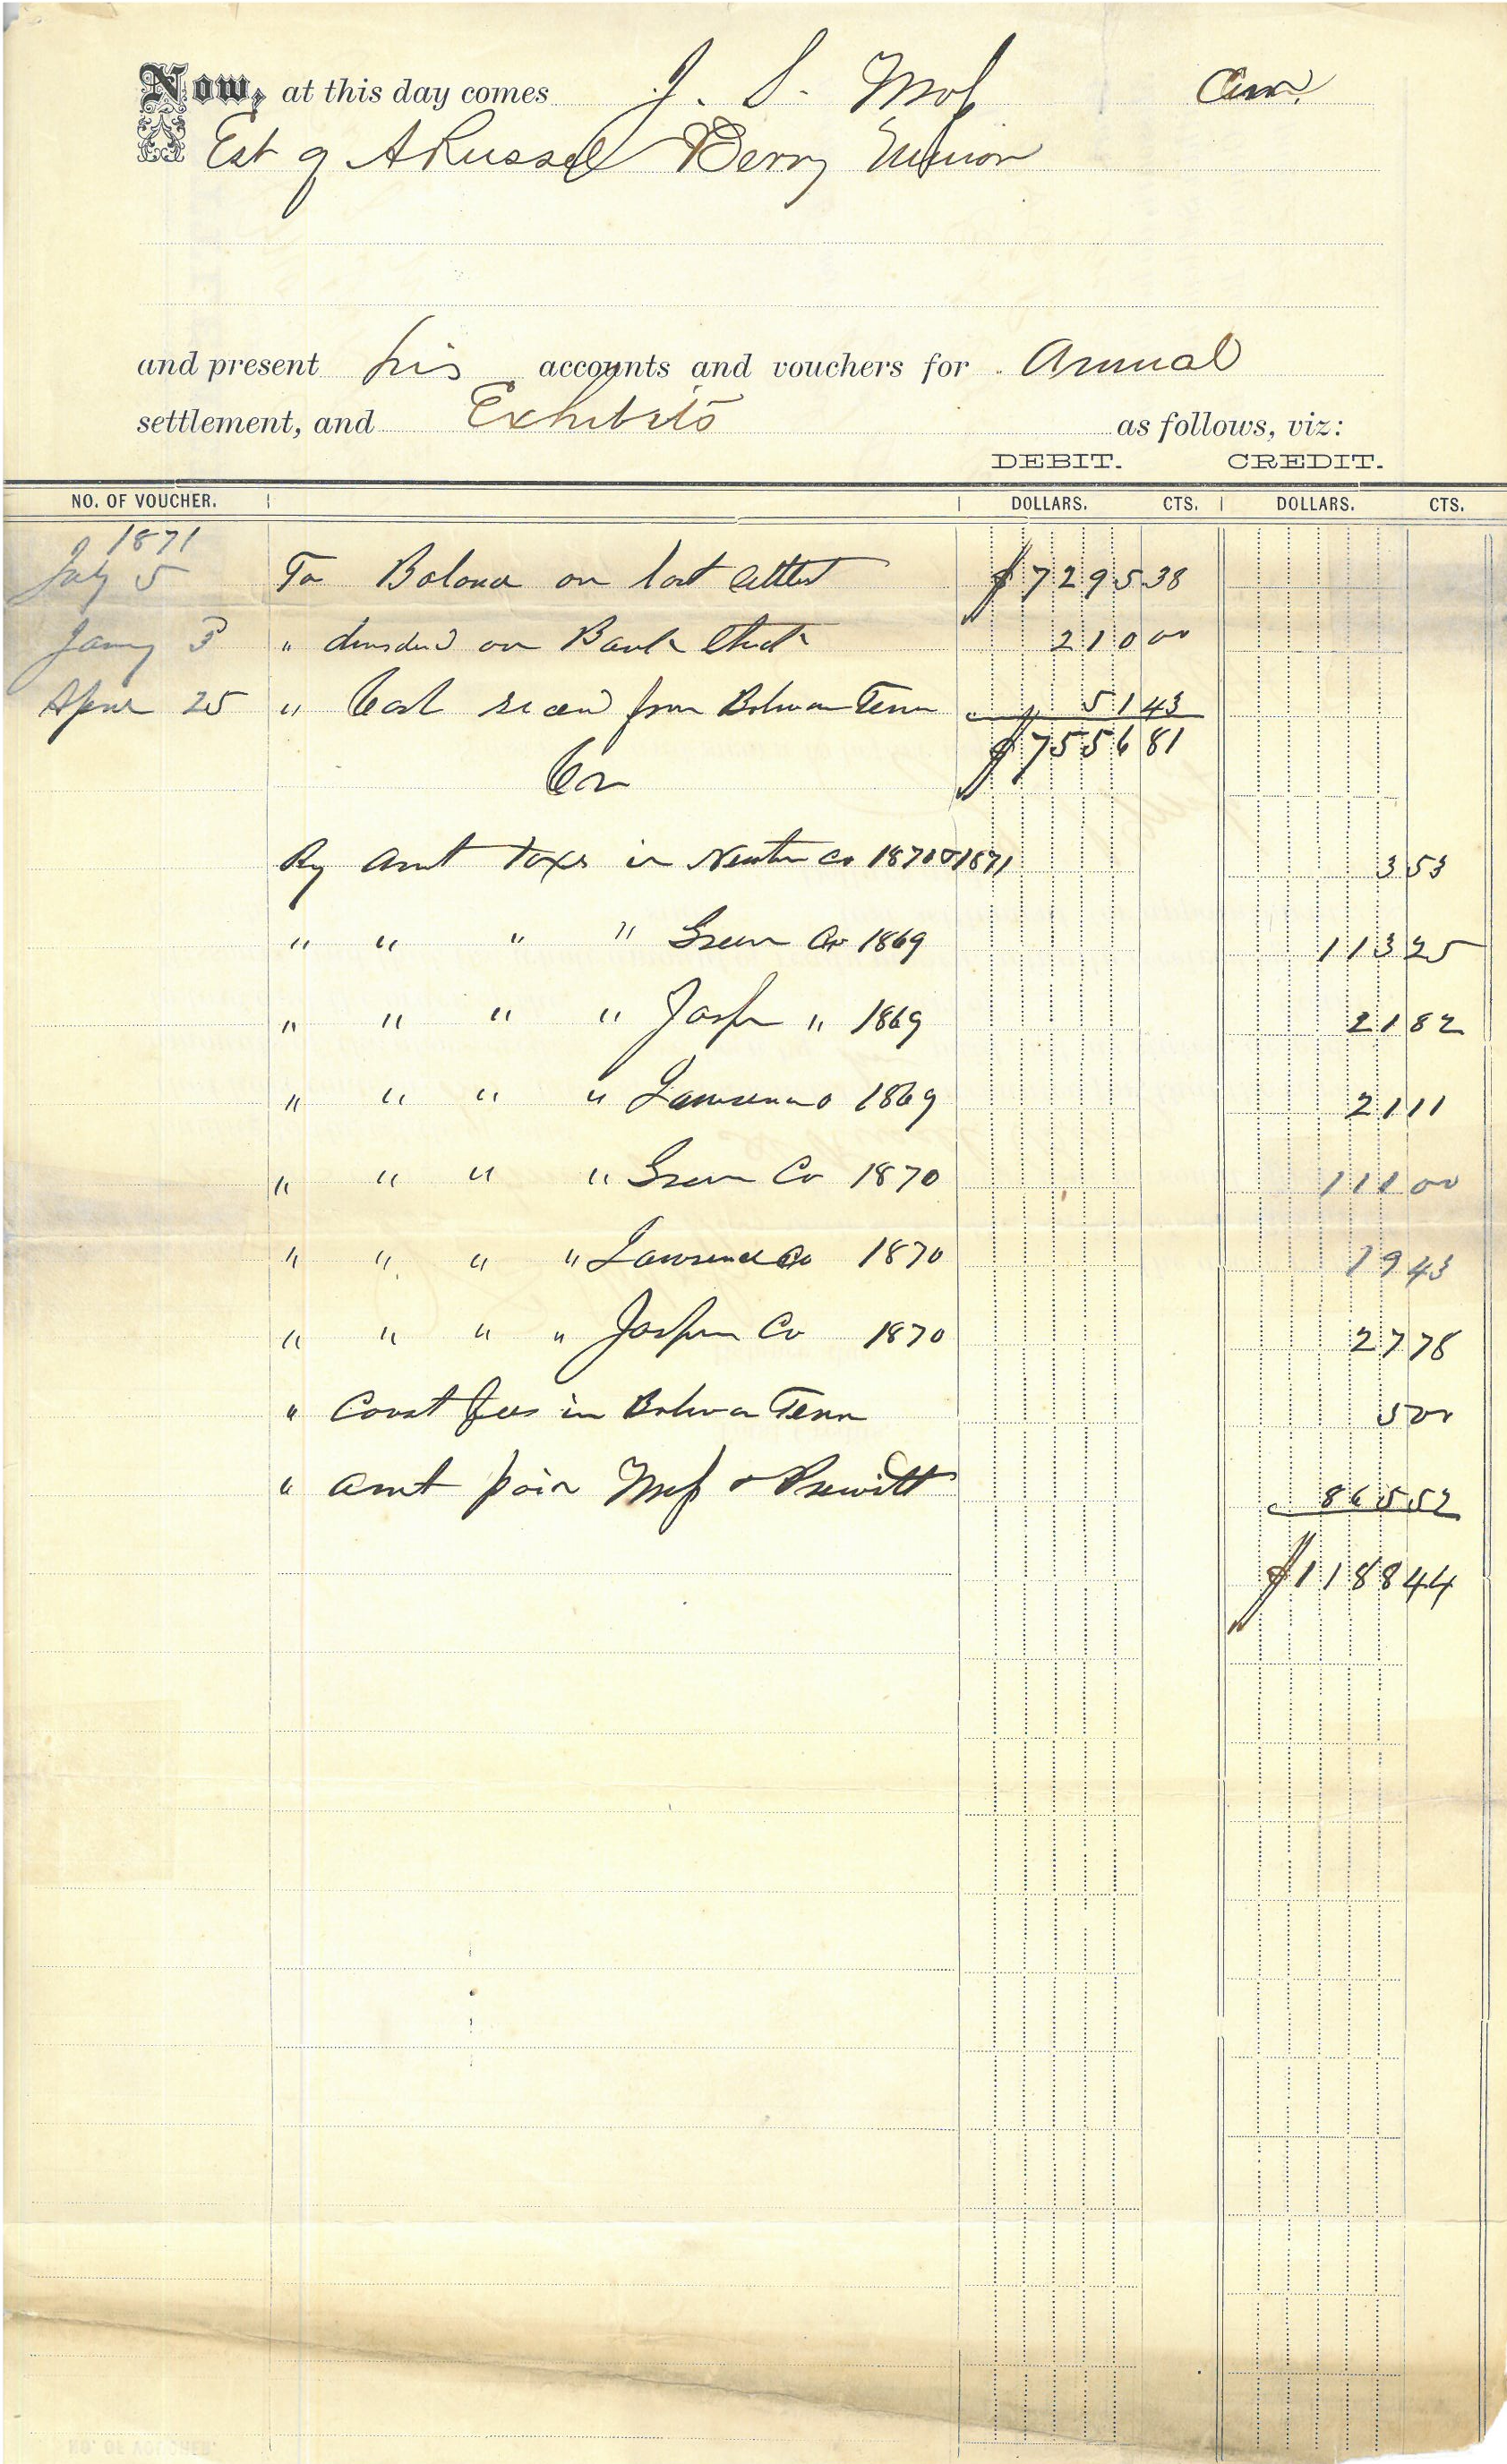 Now, at this day comes J. S. Moss Cur.
Est of A Russel Berry Minor
and present his accounts and vouchers for Annual
settlement, and Exhibits as follows, viz:
DEBIT. CREDIT.
NO. OF VOUCHER. DOLLARS. CTS. DOLLARS. CTS.
1871
July 5 To Balance on last settlet $7295 38
Jany 3 " dividend on Bank Stock 210 00
April 25 " Cash recevd from Bolivar Tenn 51 43
$7556 81
Cr
By Amt Taxes in Newton Co 1870 & 1871 3 53
" " " " Green Co 1869 113 25
" " " " Jasper " 1869 21 82
" " " " Lawrence 1869 21 11
" " " " Green Co 1870 111 00
" " " " Lawrence Co 1870 19 43
" " " " Jasper Co 1870 27 78
" Court fees in Bolivar Tenn 5 00
" amt paid Moss & Prewitt 865 52
$1188 44